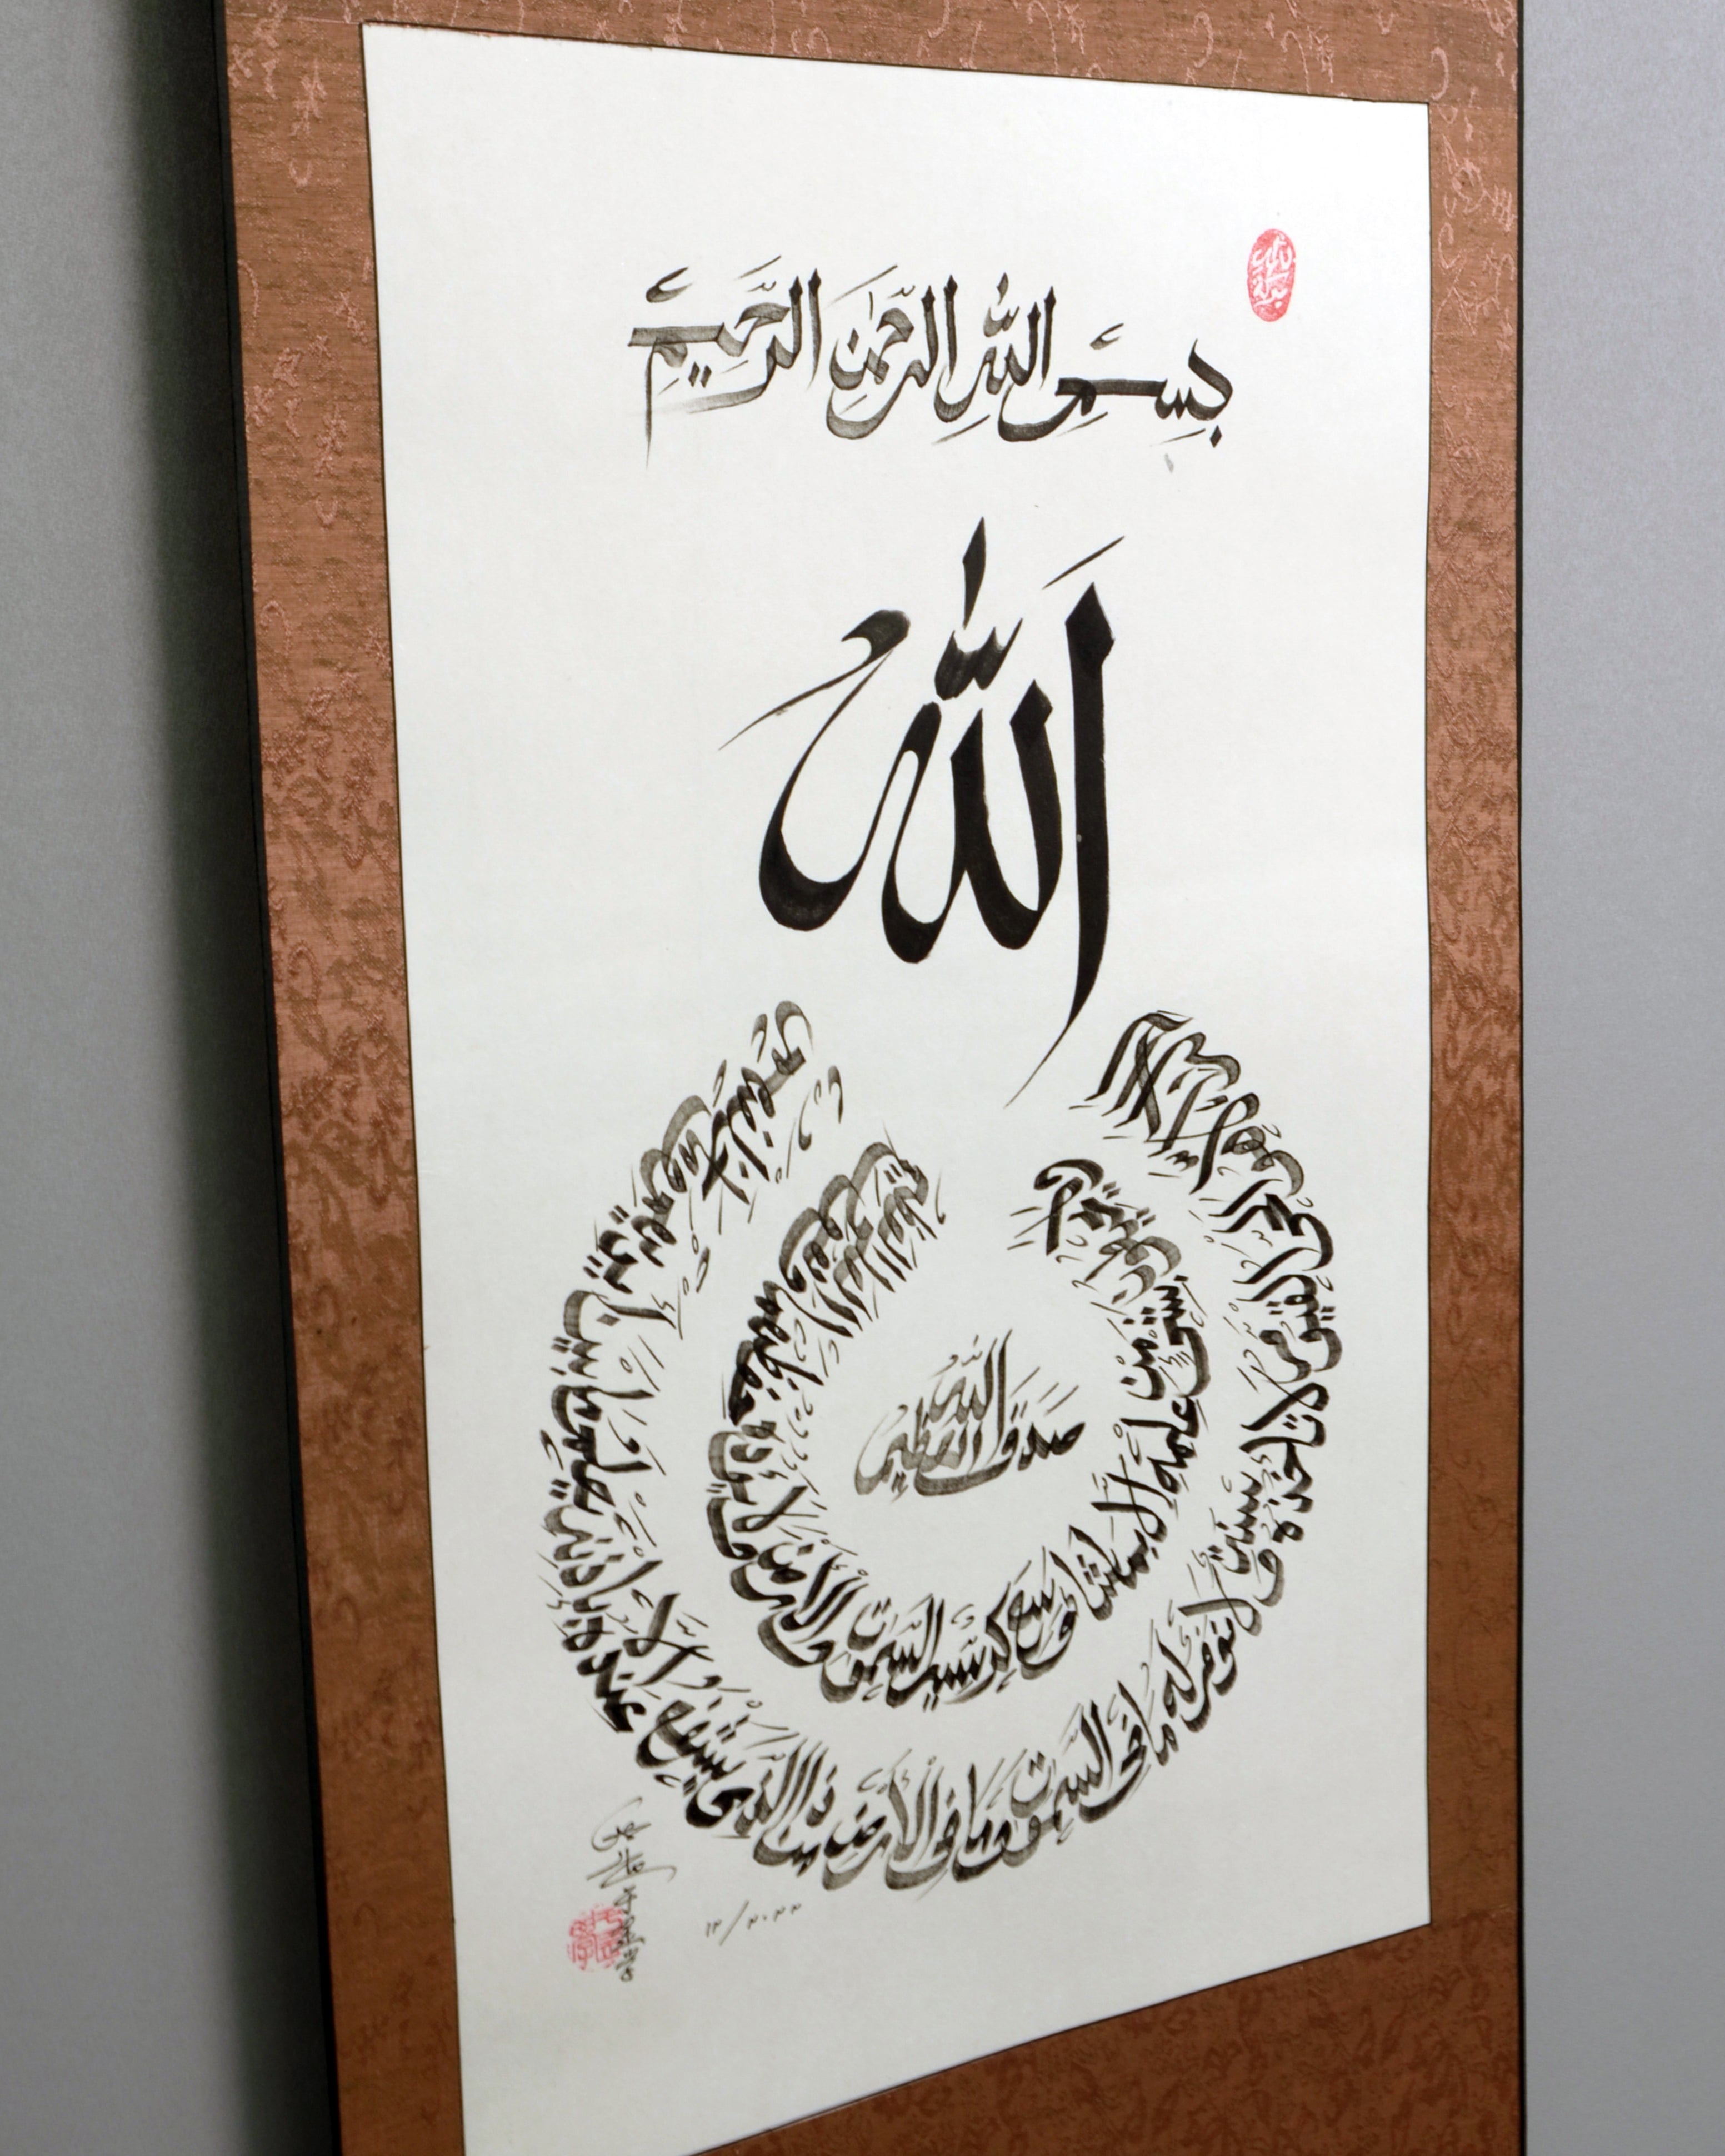 بِسْمِ اللّٰهِ الرَّحْمٰنِ الرَّحِيْمِ
اللّٰه
اللّٰه لا اله الا هو الحي القيوم لا تاخذه سنة ولا نوم له ما في السموت وما في الارض من ذا الذي يشفع عنده الا باذنه يعلم ما بين ايديهم وما خلفهم
ولا يحيطون بشيء من علمه الا بما شاء وسع كرسيه السموت والارض ولا يؤده حفظهما وهو العلي العظيم
صَدَقَ اللّٰه العَظِيْم
١٢/٢٠٢٢